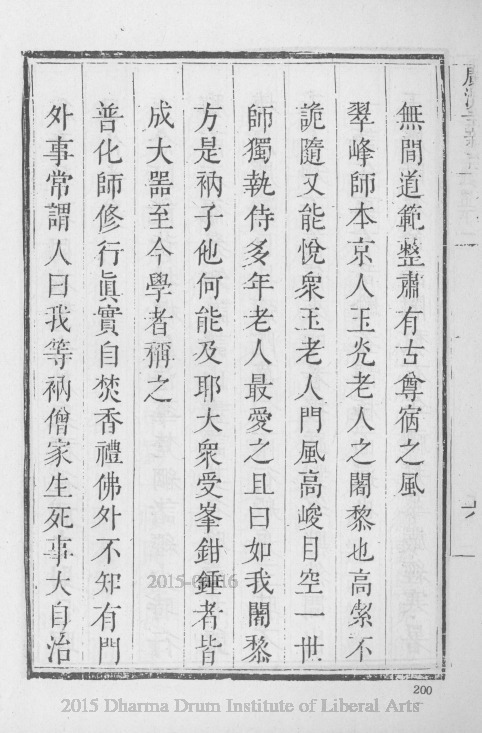 無間道範整肅有古尊宿之風
翠峰師本京人玉光老人之闍黎也高潔不
詭隨又能悅衆玉老人門風高峻目空一世
師獨執侍多年老人最愛之且曰如我闍黎
方是衲子他何能及耶大衆受峯鉗錘者皆
成大器至今學者稱之
普化師修行眞實自焚香禮佛外不知有門
外事常謂人曰我等衲僧家生死事大自治
200
2015 Dharma Drum Institute of Liberal Arts